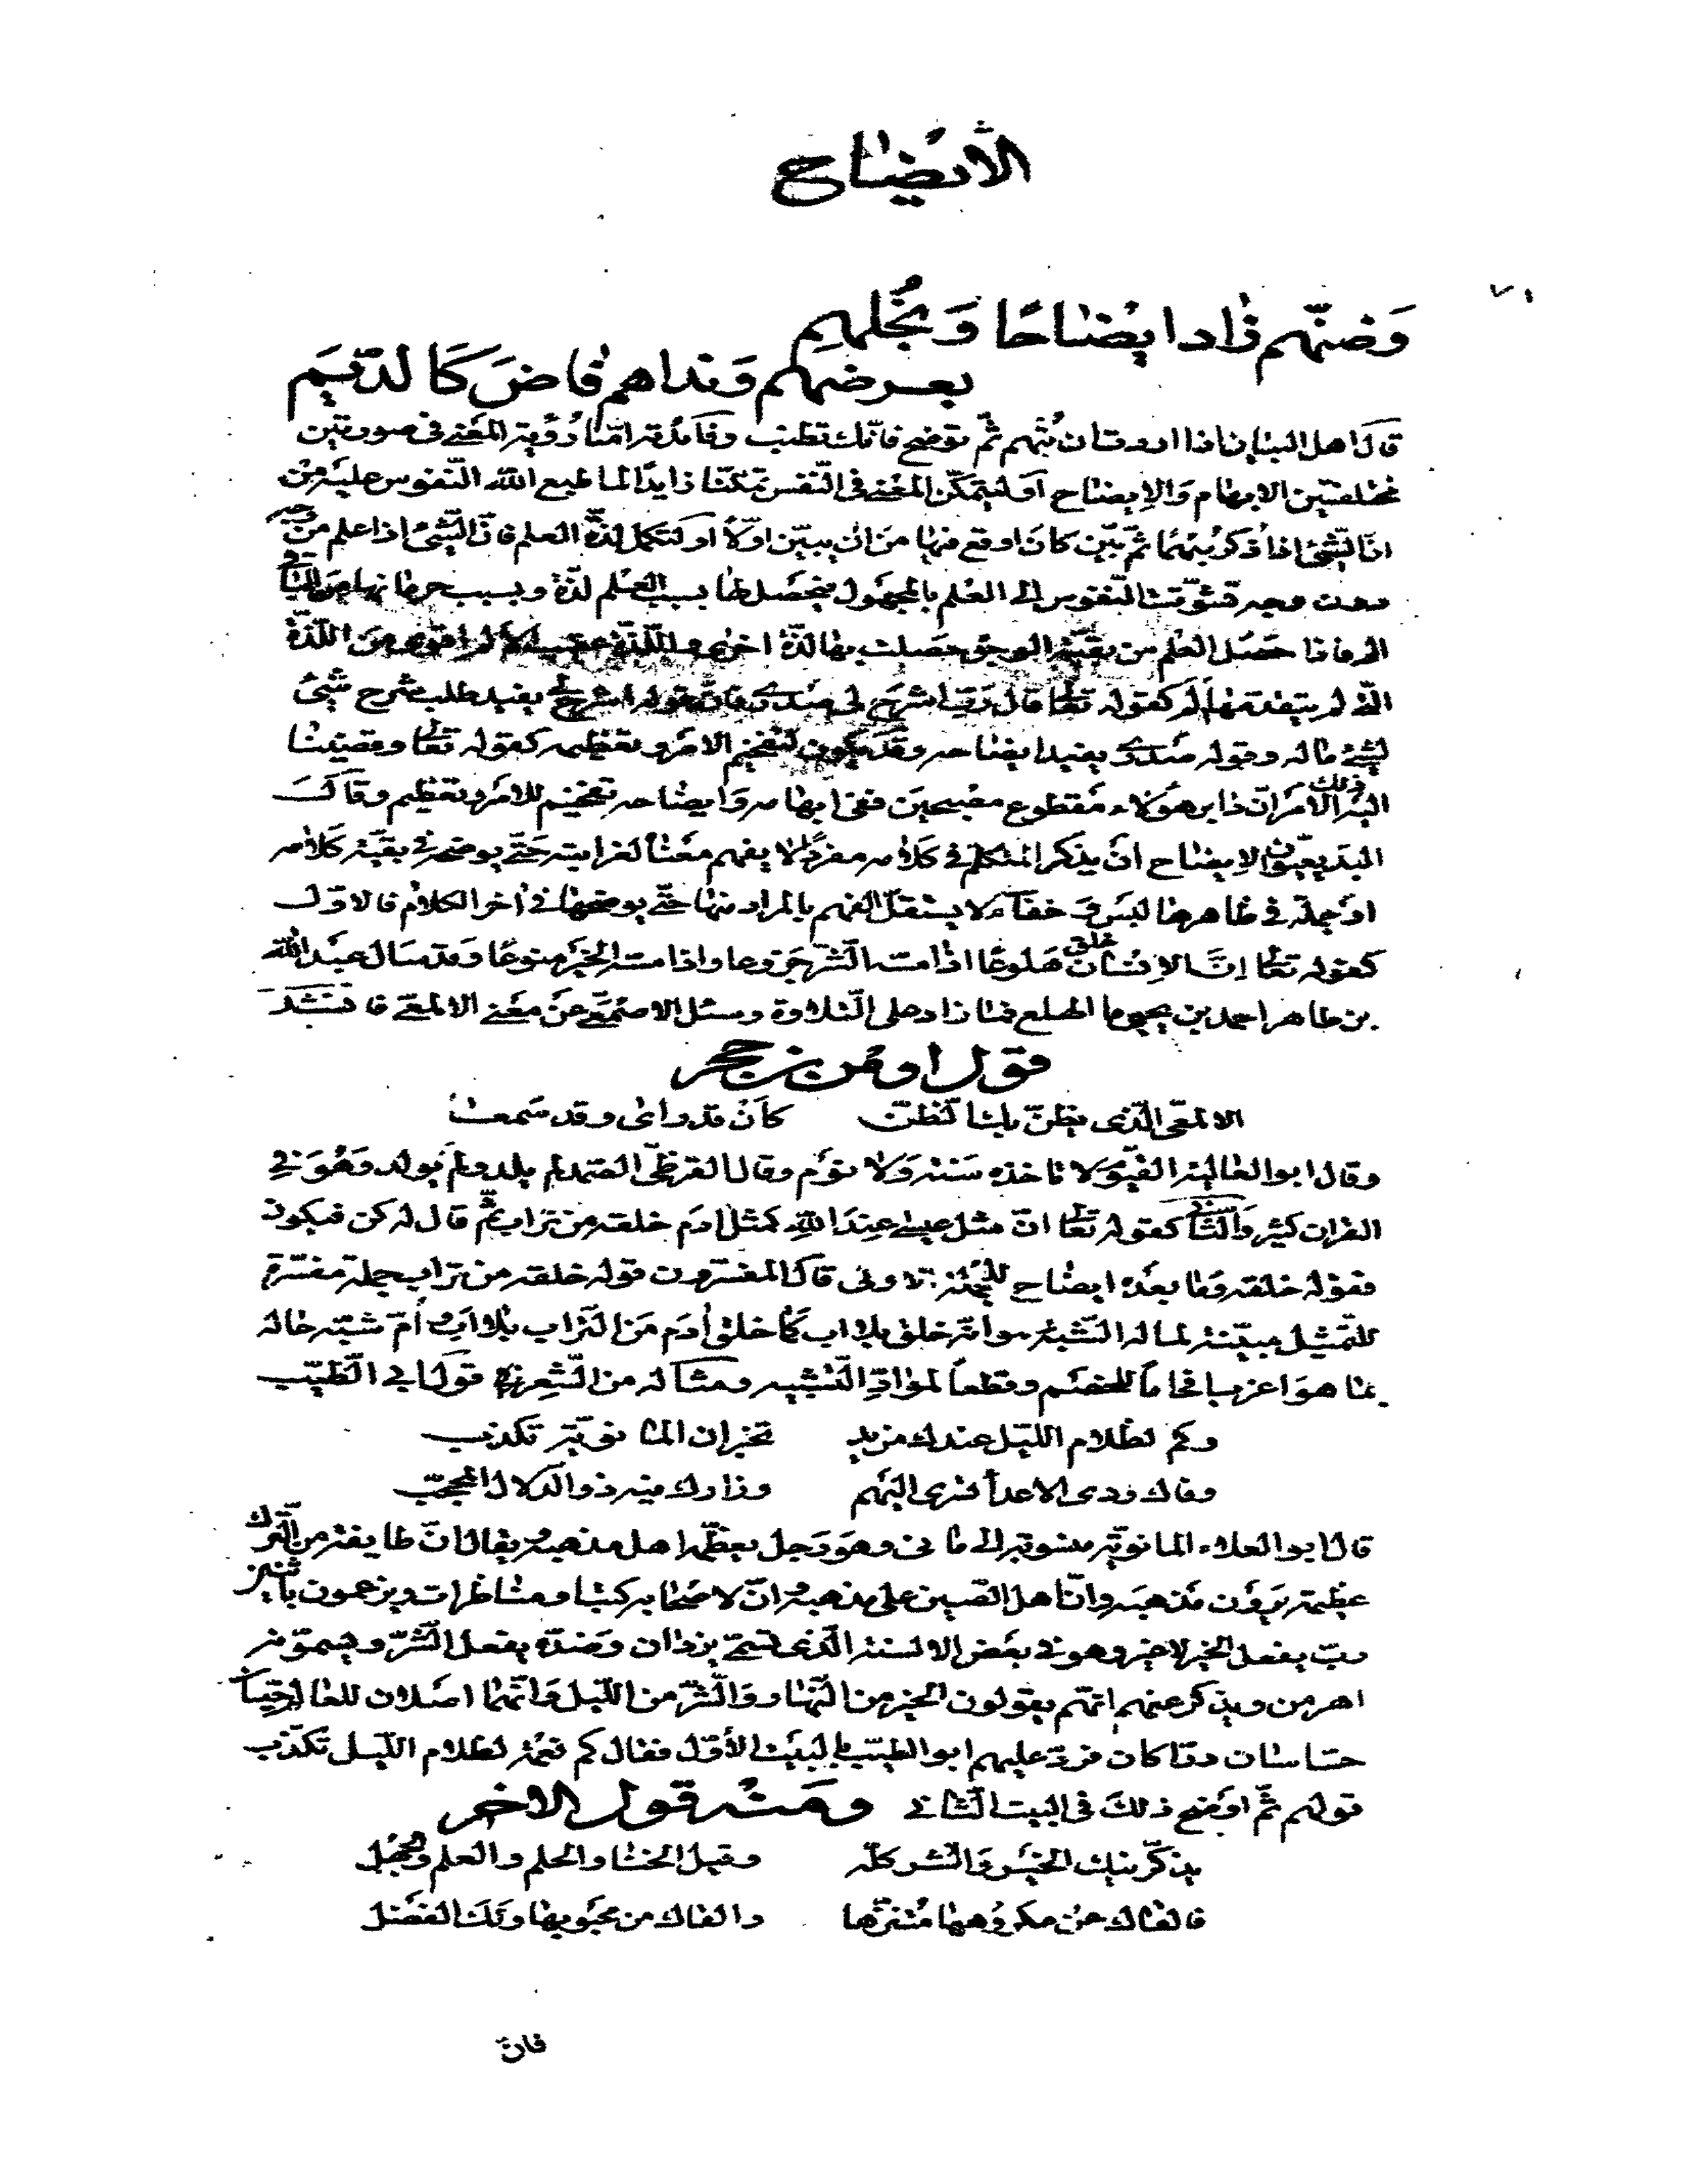 الايضاح
وضنّهم زاد ايضاحا وبخلهم
بعرضهم ونداهم فاض كالديم
قال اهل البيان اذا اردت ان تبهم ثم توضح فانك تطنب وفائدته اما رؤية المعنى فى صورتين
مختلفتين الابهام والايضاح او ليتمكن المعنى فى النفس تمكنا زايدا لما طبع الله النفوس عليه من
ان الشئ اذا ذكر مبهما ثم بيّن كان اوقع فيها من ان يبيّن اولا او لتكمل لذة العلم فان الشئ اذا علم من وجه
دون وجه تشوّقت النفوس الى العلم بالمجهول فيحصل لها بسبب العلم لذة وبسبب حرمانها من الباقى
الم فاذا حصل العلم من بقية الوجوه حصلت بها لذة اخرى واللذة عقيب الالم اقوى من اللذة
التى لم يتقدمها الم كقوله تعالى قال رب اشرح لى صدرى فان قوله اشرح لى يفيد طلب شرح شئ
لشئ ما له وقوله صدرى يفيد ايضاحه وقد يكون لتفخيم الامر وتعظيمه كقوله تعالى وقضينا
اليه ذلك الامر ان دابر هؤلاء مقطوع مصبحين ففى ابهامه وايضاحه تفخيم للامر وتعظيم وقال
البديعيون الايضاح ان يذكر المتكلم فى كلامه مفردا لا يفهم معناه لغرابته حتى يوضحه فى بقية كلامه
او جملة فى ظاهرها لبس وخفاء لا يستقل الفهم بالمراد منها حتى يوضحها فى اخر الكلام فالاول
كقوله تعالى انّ الانسان خلق هلوعا اذا مسه الشر جزوعا واذا مسه الخير منوعا وقد سال عبد الله
بن طاهر احمد بن يحيى ما الهلع فما زاد على التلاوة وسئل الاصمعى عن معنى الالمعى فانشد
قول اوس بن حجر
الالمعى الذى يظن بك الظن كأن قد راى وقد سمعا
وقال ابو العالية القيّوم لا تاخذه سنة ولا نوم وقال القرظى الصمد لم يلد ولم يولد وهو فى
القران كثير والثانى كقوله تعالى ان مثل عيسى عند الله كمثل ادم خلقه من تراب ثم قال له كن فيكون
فقوله خلقه وما بعده ايضاح للجملة الاولى قال المفسرون قوله خلقه من تراب جملة مفسرة
للتمثيل مبيّنة لما له التشبيه وانه خلق بلا اب كما خلق أدم من التراب بلا اب وأم شبّه حاله
بما هو اغرب افحاما للخصم وقطعا لمواد التشبيه ومثاله من الشعر قول ابى الطيّب
وكم لظلام الليل عندك من يد تخبر ان المانويّة تكذب
وقاك ردى الاعداء تسرى اليهم وزارك فيه ذو الدلال المحجّب
قال ابو العلاء المانويّة منسوبة الى مانى وهو رجل يعظّمه اهل مذهبه يقال ان طايفة من الترك
عظيمة يرون مذهبه وان اهل الصين على مذهبه وان لاصحابه كتبا ومناظرات ويزعمون باثنين
رب يفعل الخير لا غير وهو فى بعض الالسنة الذى تسمى يزدان وضده يفعل الشر ويسمونه
اهرمن ويذكر عنهم انهم يقولون الخير من النهار والشر من الليل وانهما اصلان للعالم
حساسان دراكان فردّ عليهم ابو الطيب بالبيت الأول فقال كم نعمة لظلام الليل تكذّب
قولهم ثم اوضح ذلك فى البيت الثانى ومنه قول الاخر
يذكّرنيك الخير والشر كله وقيل الخنا والحلم والعلم والجهل
فالقاك عن مكروهها متنزها والقاك من محبوبها ولك الفضل
فان